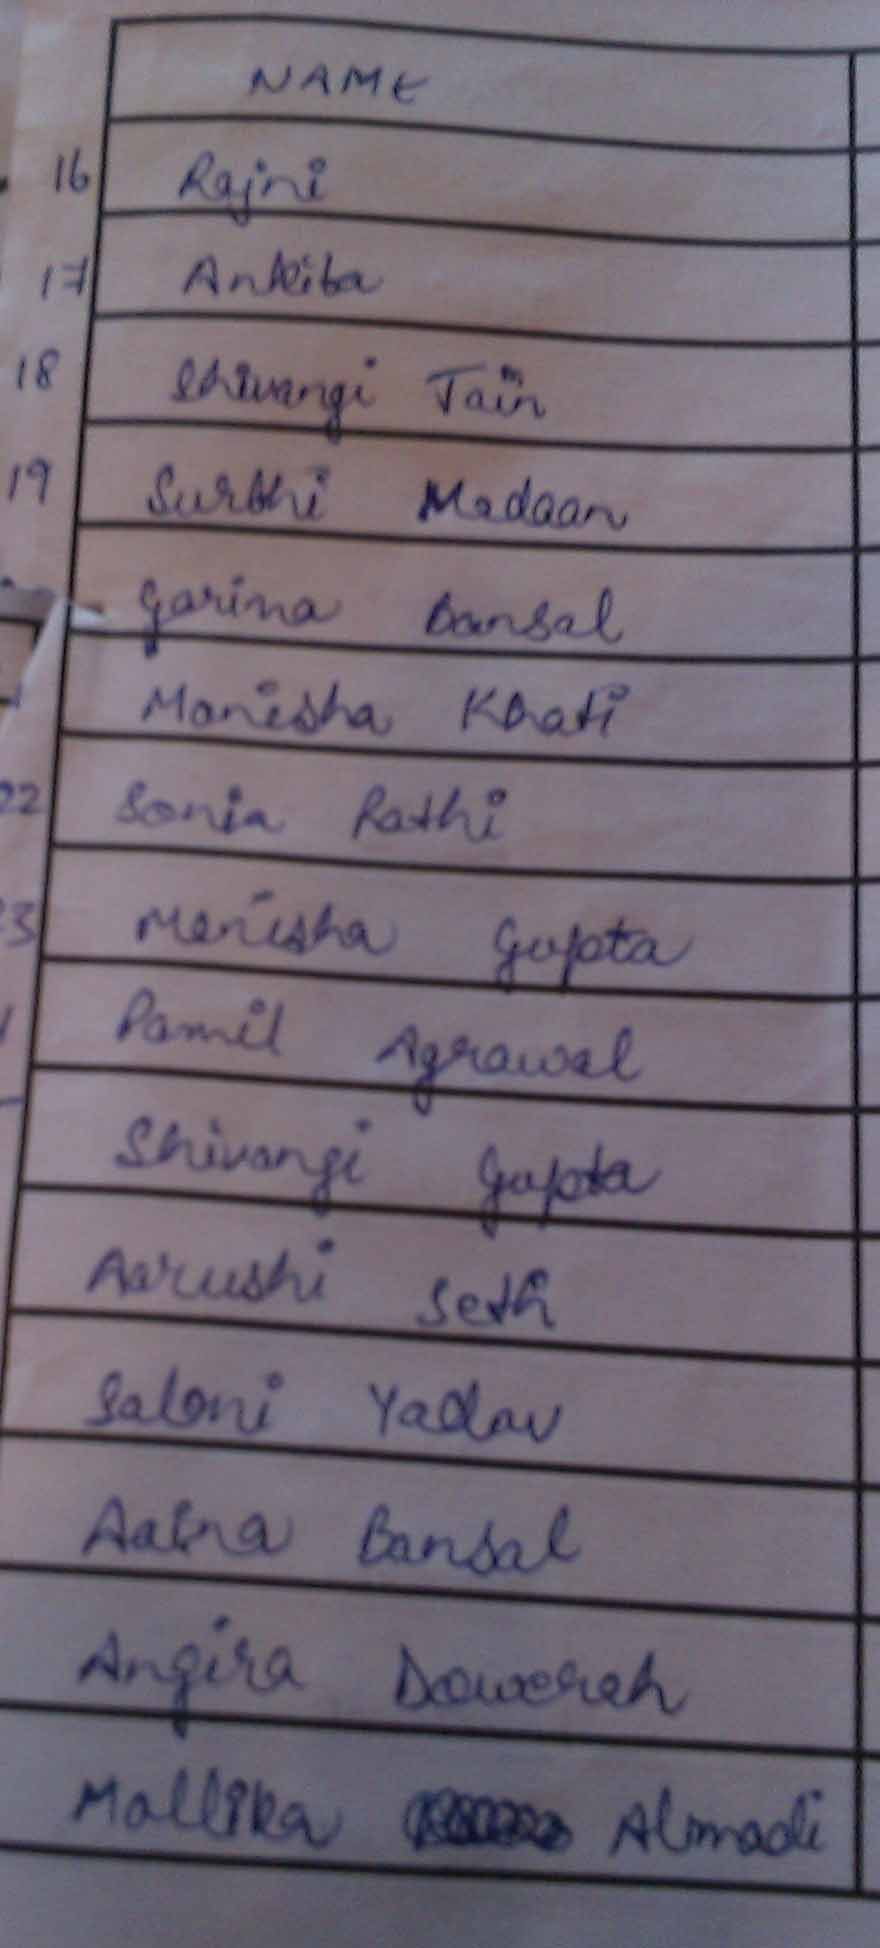 NAME
16 Rajni
17 Ankita
18 Shivangi Jain
19 Surbhi Madaan
Garima Bansal
Manisha Khati
22 Sonia Rathi
23 Manisha Gupta
Pamil Agrawal
Shivangi Gupta
Aarushi Seth
Saloni Yadav
Bansal
Angira Dowerah
Mallika Almadi